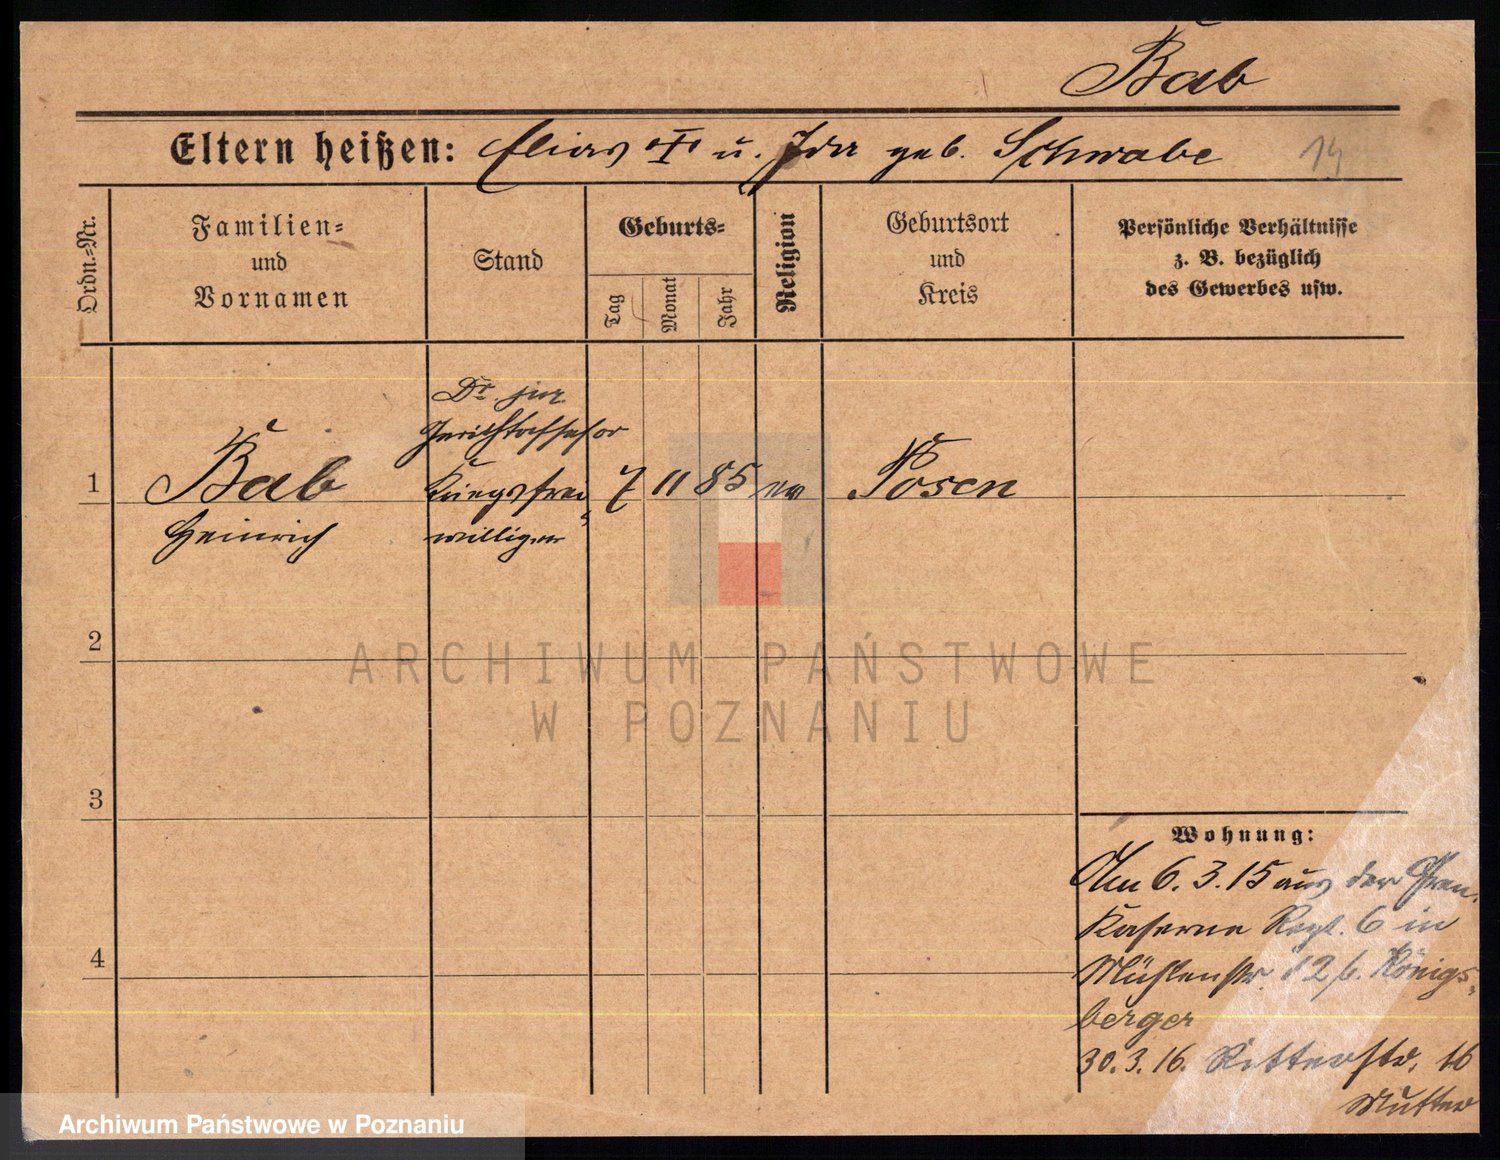 Bab
Eltern heißen: Elias † u. Ida geb. Schwabe
14
Ordn.-Nr.
Familien-
und
Vornamen
Stand
Geburts-
Tag
Monat
Jahr
Religion
Geburtsort
und
Kreis
Persönliche Verhältnisse
z. B. bezüglich
des Gewerbes usw.
Dr. jur.
Gerichtsassessor
1 Bab Kriegsfrei- 7 11 85 Posen
Heinrich williger
2
3
4
Wohnung:
Am 6.3.15 aus der Gren.
Kaserne Regt. 6 in
Mühlenstr. 12 b. Königs-
berger
30.3.16. Ritterstr. 16
Mutter
ARCHIWUM PAŃSTWOWE
W POZNANIU
Archiwum Państwowe w Poznaniu